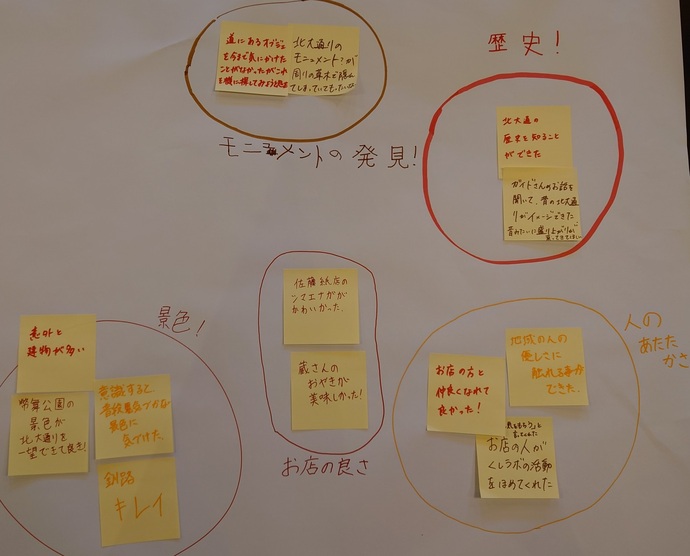 道にあるオブジェ
を今まで気にかけた
ことがなかったがこれ
を機に探してみようと思
北大通りの
モニュメント?が
周りの草木で隠れ
てしまっていてもったいな
モニュメントの発見!
歴史!
北大通の
歴史を知ること
ができた
ガイドさんのお話を
聞いて、昔の北大通
りがイメージできた
昔みたいに盛り上がりが
景色!
意外と
建物が多い
幣舞公園の
景色が
北大通りを
一望できて良き!
意識すると
普段気づかない
景色に
気づけた
釧路
キレイ
佐藤紙店の
シマエナガが
かわいかった。
蔵さんの
おやきが
美味しかった!
お店の良さ
人の
あたた
かさ
地域の人の
優しさに
触れる事が
できた.
お店の方と
仲良くなれて
良かった!
お店の人が
くしラボの活動
をほめてくれた